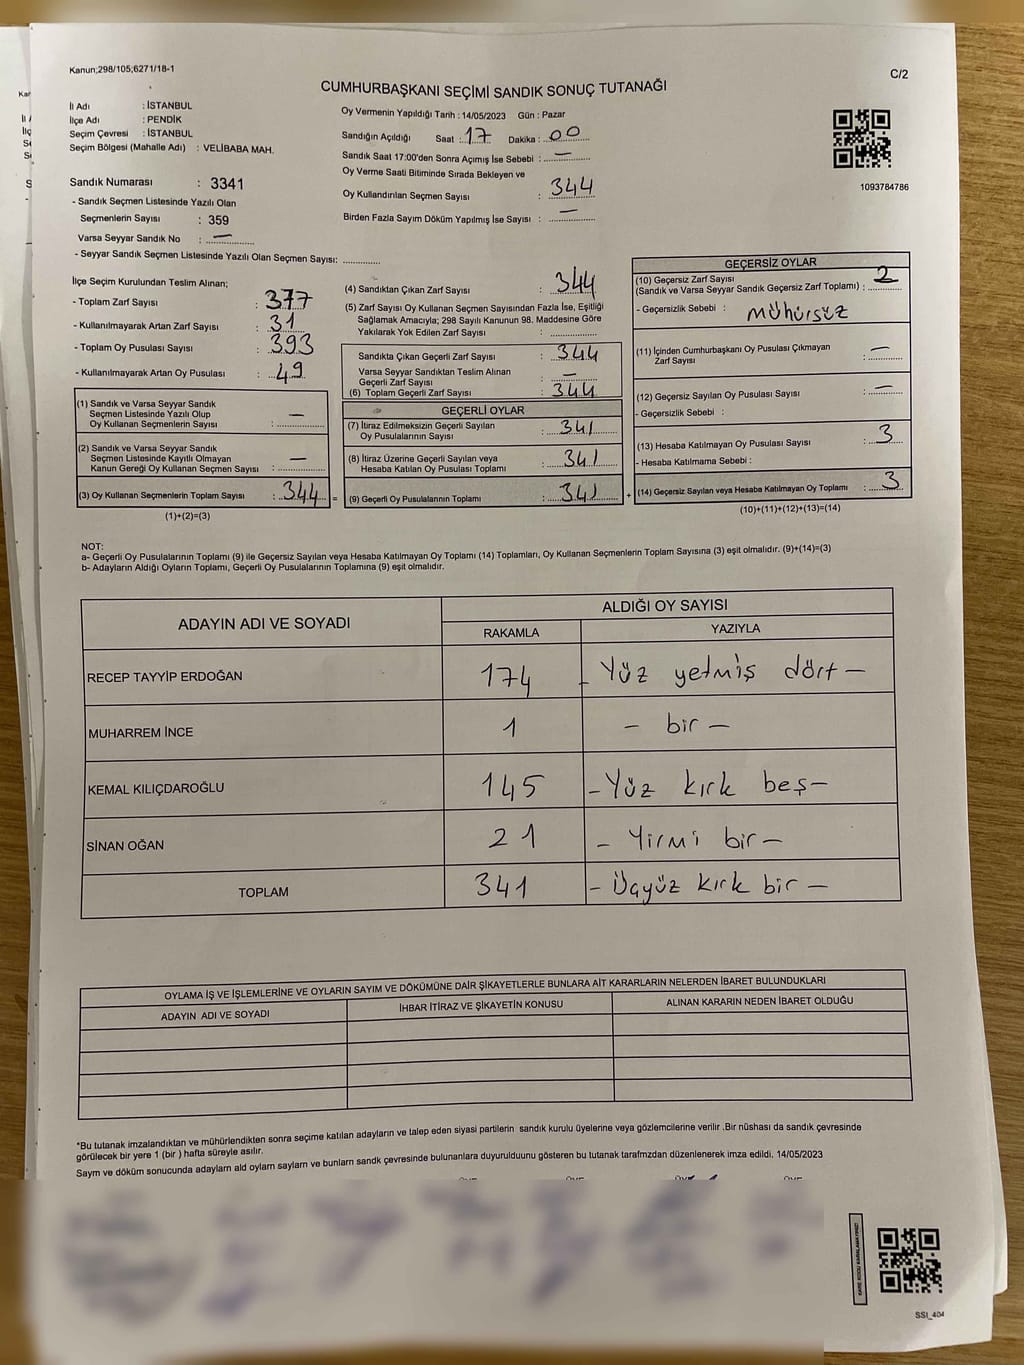 Kanun;298/105;6271/18-1
C/2
CUMHURBAŞKANI SEÇİMİ SANDIK SONUÇ TUTANAĞI
İl Adı : İSTANBUL
İlçe Adı : PENDİK
Seçim Çevresi : İSTANBUL
Seçim Bölgesi (Mahalle Adı) : VELİBABA MAH.
Sandık Numarası : 3341
- Sandık Seçmen Listesinde Yazılı Olan
Seçmenlerin Sayısı : 359
Varsa Seyyar Sandık No : —
- Seyyar Sandık Seçmen Listesinde Yazılı Olan Seçmen Sayısı: ............
Oy Vermenin Yapıldığı Tarih : 14/05/2023 Gün : Pazar
Sandığın Açıldığı Saat : 17 Dakika : 00
Sandık Saat 17:00'den Sonra Açımış İse Sebebi : —
Oy Verme Saati Bitiminde Sırada Bekleyen ve
Oy Kullandırılan Seçmen Sayısı : 344
Birden Fazla Sayım Döküm Yapılmış İse Sayısı : —
1093784786
İlçe Seçim Kurulundan Teslim Alınan;
- Toplam Zarf Sayısı : 377
- Kullanılmayarak Artan Zarf Sayısı : 31
- Toplam Oy Pusulası Sayısı : 393
- Kullanılmayarak Artan Oy Pusulası : 49
(1) Sandık ve Varsa Seyyar Sandık
Seçmen Listesinde Yazılı Olup
Oy Kullanan Seçmenlerin Sayısı : —
(2) Sandık ve Varsa Seyyar Sandık
Seçmen Listesinde Kayıtlı Olmayan
Kanun Gereği Oy Kullanan Seçmen Sayısı : —
(3) Oy Kullanan Seçmenlerin Toplam Sayısı : 344 =
(1)+(2)=(3)
(4) Sandıktan Çıkan Zarf Sayısı : 344
(5) Zarf Sayısı Oy Kullanan Seçmen Sayısından Fazla İse, Eşitliği
Sağlamak Amacıyla; 298 Sayılı Kanunun 98. Maddesine Göre
Yakılarak Yok Edilen Zarf Sayısı : ............
Sandıkta Çıkan Geçerli Zarf Sayısı : 344
Varsa Seyyar Sandıktan Teslim Alınan
Geçerli Zarf Sayısı : —
(6) Toplam Geçerli Zarf Sayısı : 344
GEÇERLİ OYLAR
(7) İtiraz Edilmeksizin Geçerli Sayılan
Oy Pusulalarının Sayısı : 341
(8) İtiraz Üzerine Geçerli Sayılan veya
Hesaba Katılan Oy Pusulası Toplamı : 341
(9) Geçerli Oy Pusulalarının Toplamı : 341 +
GEÇERSİZ OYLAR
(10) Geçersiz Zarf Sayısı
(Sandık ve Varsa Seyyar Sandık Geçersiz Zarf Toplamı) : 2
- Geçersizlik Sebebi : mühürsüz
(11) İçinden Cumhurbaşkanı Oy Pusulası Çıkmayan
Zarf Sayısı : —
(12) Geçersiz Sayılan Oy Pusulası Sayısı : —
- Geçersizlik Sebebi :
(13) Hesaba Katılmayan Oy Pusulası Sayısı : 3
- Hesaba Katılmama Sebebi :
(14) Geçersiz Sayılan veya Hesaba Katılmayan Oy Toplamı : 3
(10)+(11)+(12)+(13)=(14)
NOT:
a- Geçerli Oy Pusulalarının Toplamı (9) ile Geçersiz Sayılan veya Hesaba Katılmayan Oy Toplamı (14) Toplamları, Oy Kullanan Seçmenlerin Toplam Sayısına (3) eşit olmalıdır. (9)+(14)=(3)
b- Adayların Aldığı Oyların Toplamı, Geçerli Oy Pusulalarının Toplamına (9) eşit olmalıdır.
ADAYIN ADI VE SOYADI ALDIĞI OY SAYISI
RAKAMLA YAZIYLA
RECEP TAYYİP ERDOĞAN 174 - Yüz yetmiş dört —
MUHARREM İNCE 1 — bir —
KEMAL KILIÇDAROĞLU 145 - Yüz kırk beş —
SİNAN OĞAN 21 - Yirmi bir —
TOPLAM 341 - Üçyüz kırk bir —
OYLAMA İŞ VE İŞLEMLERİNE VE OYLARIN SAYIM VE DÖKÜMÜNE DAİR ŞİKAYETLERLE BUNLARA AİT KARARLARIN NELERDEN İBARET BULUNDUKLARI
ADAYIN ADI VE SOYADI İHBAR İTİRAZ VE ŞİKAYETİN KONUSU ALINAN KARARIN NEDEN İBARET OLDUĞU
*Bu tutanak imzalandıktan ve mühürlendikten sonra seçime katılan adayların ve talep eden siyasi partilerin sandık kurulu üyelerine veya gözlemcilerine verilir .Bir nüshası da sandık çevresinde
görülecek bir yere 1 (bir ) hafta süreyle asılır.
Saym ve döküm sonucunda adaylarn ald oylarn saylarn ve bunlarn sandk çevresinde bulunanlara duyurulduunu gösteren bu tutanak tarafmzdan düzenlenerek imza edildi. 14/05/2023
KARE KODU KARALAMAYINIZ!
SSI_404